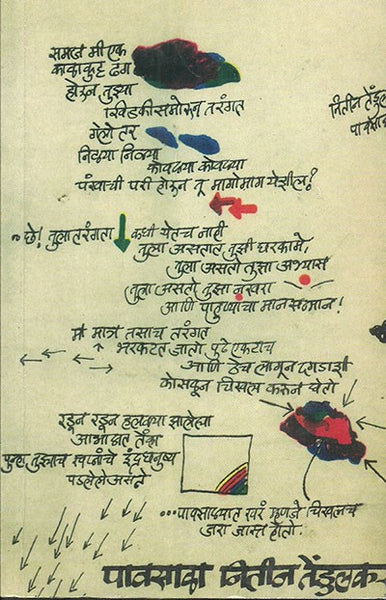 समजा मी एक
काळाकुट्ट ढग
होऊन तुझ्या
खिडकीसमोरून तरंगत
गेलो तर
निळ्या निळ्या
कोवळ्या कोवळ्या
पंखाची परी होऊन तू मागोमाग येशील?
छे! तुला तरंगता कधी येतच नाही
तुला असतात तुझी घरकामे,
तुला असतो तुझा अभ्यास
तुला असतो तुझा नखरा
आणि पाहुण्यांचा मानसन्मान!
मी मात्र तसाच तरंगत
भरकटत जातो पुढे एकटाच
आणि ठेच लागून दगडाशी
कोसळून चिखल करून घेतो
रडून रडून हलक्या झालेल्या
आभाळात तेंव्हा
पुन्हा तुझ्याच स्वप्नांचे इंद्रधनुष्य
पडलेले असते
...पावसाळ्यात खरं म्हणजे चिखलच
जरा जास्त होतो.
पावसाळा नितीन तेंडुलकर
नितीन तेंडुल